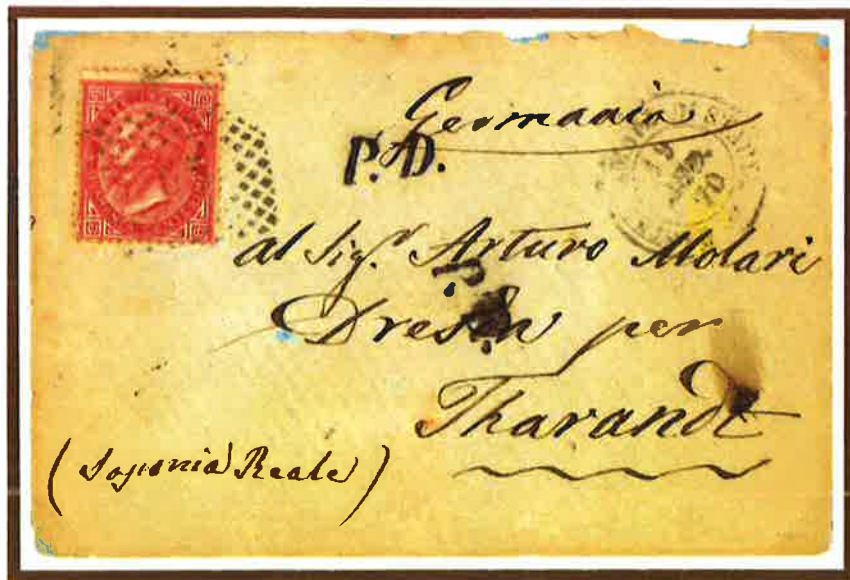 Germania
P.D.
al Sig.r Arturo Molari
Dresda per
Tharandt
(Sassonia Reale)
19
70